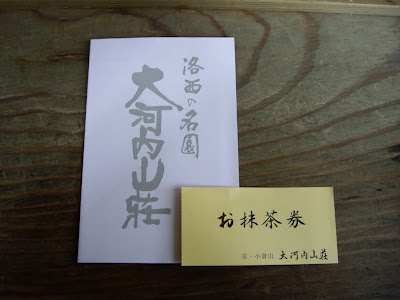 洛西の名園
大河内山荘
お抹茶券
京・小倉山 大河内山荘